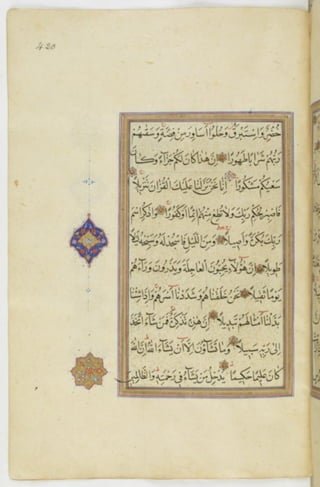 420
خُضْرٌ وَاِسْتَبْرَقٌ وَحُلُّوا اَسَاوِرَ مِنْ فِضَّةٍ وَسَقٰهُمْ
رَبُّهُمْ شَرَابًا طَهُورًا اِنَّ هٰذَا كَانَ لَكُمْ جَزَاءً وَكَانَ
سَعْيُكُمْ مَشْكُورًا اِنَّا نَحْنُ نَزَّلْنَا عَلَيْكَ الْقُرْاٰنَ تَنْزِيلًا
فَاصْبِرْ لِحُكْمِ رَبِّكَ وَلَا تُطِعْ مِنْهُمْ اٰثِمًا اَوْ كَفُورًا وَاذْكُرِ اسْمَ
رَبِّكَ بُكْرَةً وَاَصِيلًا وَمِنَ اللَّيْلِ فَاسْجُدْ لَهُ وَسَبِّحْهُ لَيْلًا
طَوِيلًا اِنَّ هٰؤُلَاءِ يُحِبُّونَ الْعَاجِلَةَ وَيَذَرُونَ وَرَاءَهُمْ
يَوْمًا ثَقِيلًا نَحْنُ خَلَقْنَاهُمْ وَشَدَدْنَا اَسْرَهُمْ وَاِذَا شِئْنَا
بَدَّلْنَا اَمْثَالَهُمْ تَبْدِيلًا اِنَّ هٰذِهِ تَذْكِرَةٌ فَمَنْ شَاءَ اتَّخَذَ
اِلٰى رَبِّهِ سَبِيلًا وَمَا تَشَاؤُنَ اِلَّا اَنْ يَشَاءَ اللهُ اِنَّ اللهَ
كَانَ عَلِيمًا حَكِيمًا يُدْخِلُ مَنْ يَشَاءُ فِي رَحْمَتِهِ وَالظَّالِمِينَ